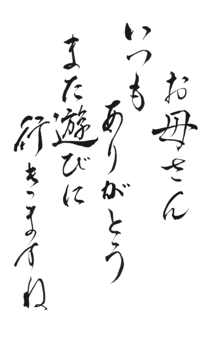 お母さん
いつも
ありがとう
また遊びに
行きますね